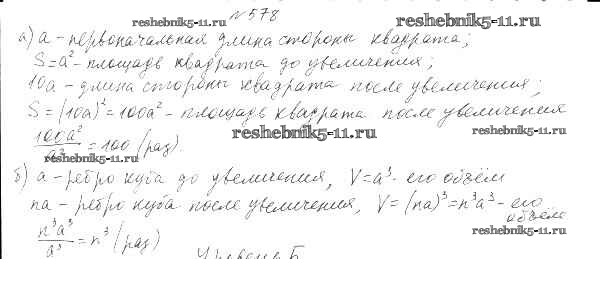 №578
reshebnik5-11.ru
reshebnik5-11.ru
а) a - первоначальная длина стороны квадрата;
S = a² - площадь квадрата до увеличения;
reshebnik5-11.ru
10a - длина стороны квадрата после увеличения;
S = (10a)² = 100a² - площадь квадрата после увеличения
reshebnik5-11.ru
100a²/a² = 100 (раз).
reshebnik5-11.ru
reshebnik5-11.ru
б) a - ребро куба до увеличения, V = a³ - его объём
na - ребро куба после увеличения, V = (na)³ = n³a³ - его
объём
n³a³/a³ = n³ (раз)
reshebnik5-11.ru